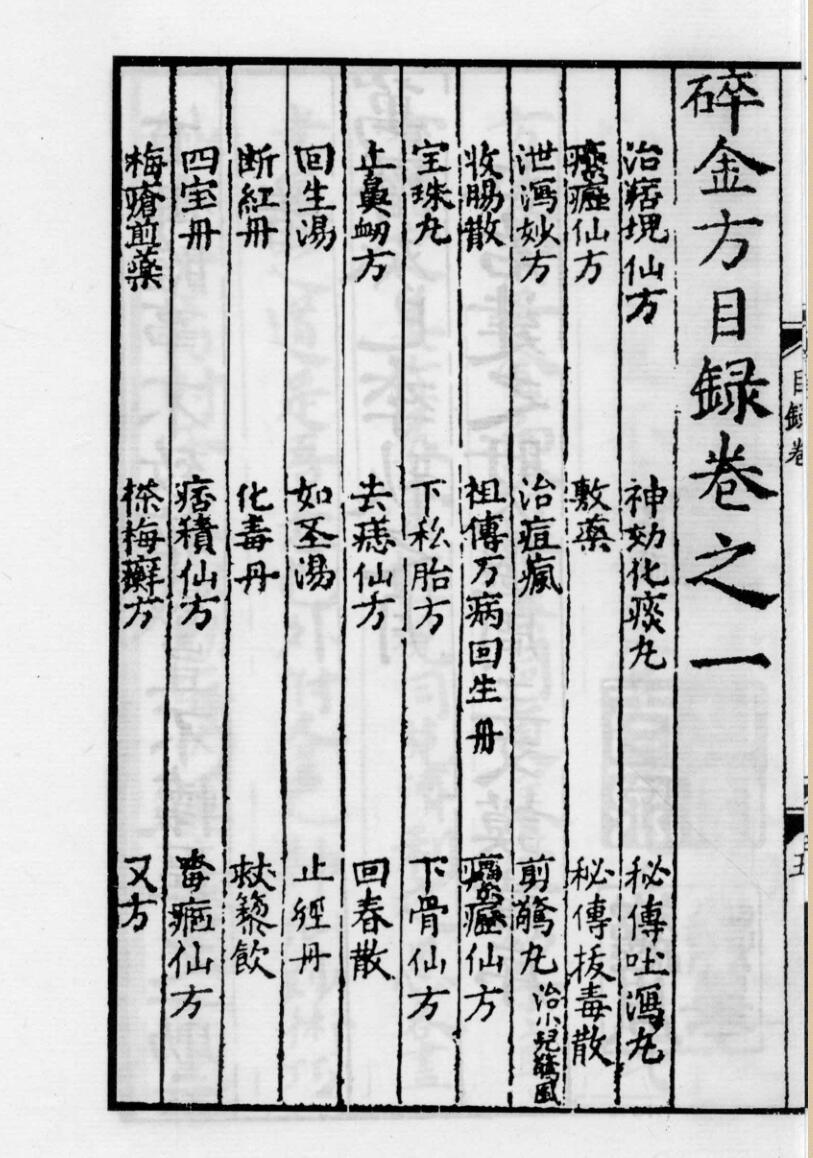 碎金方目録卷之一
治痞塊仙方 神効化痰丸 秘傳吐瀉丸
仙方 敷藥 秘傳拔毒散
泄瀉妙方 治痘瘋 剪驚丸 治小兒驚風
收腸散 祖傳万病回生丹 仙方
宝珠丸 下私胎方 下骨仙方
止鼻衂方 去痣仙方 回春散
回生湯 如圣湯 止經丹
断紅丹 化毒丹 飲
四宝丹 痞積仙方 仙方
梅瘡煎藥 梅癬方 又方
目録卷
五